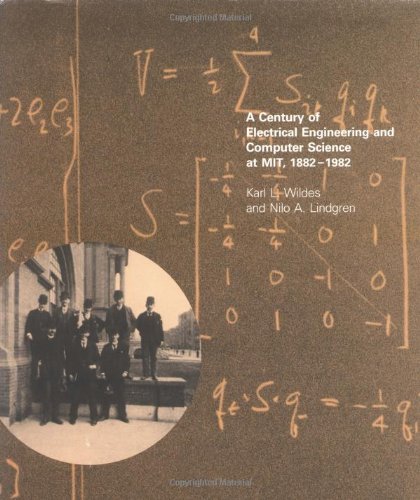 Copyrighted Material
4
V = 1/2 ∑ S q_i q_k
+2ρ₂ρ₃
A Century of
Electrical Engineering and
Computer Science
at MIT, 1882–1982
Karl L. Wildes
and Nilo A. Lindgren
S =
-1/4 -1/4 0 1
-1/4 -1/4 0 1
1 0 -1 0
0 1 0 -1
= -1/4
Copyrighted Material